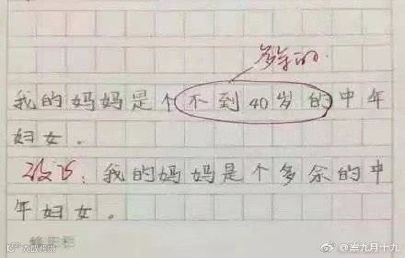 多余的
我的妈妈是个不到40岁的中年
妇女。
改为：我的妈妈是个多余的中
年妇女。
@岽九月十九